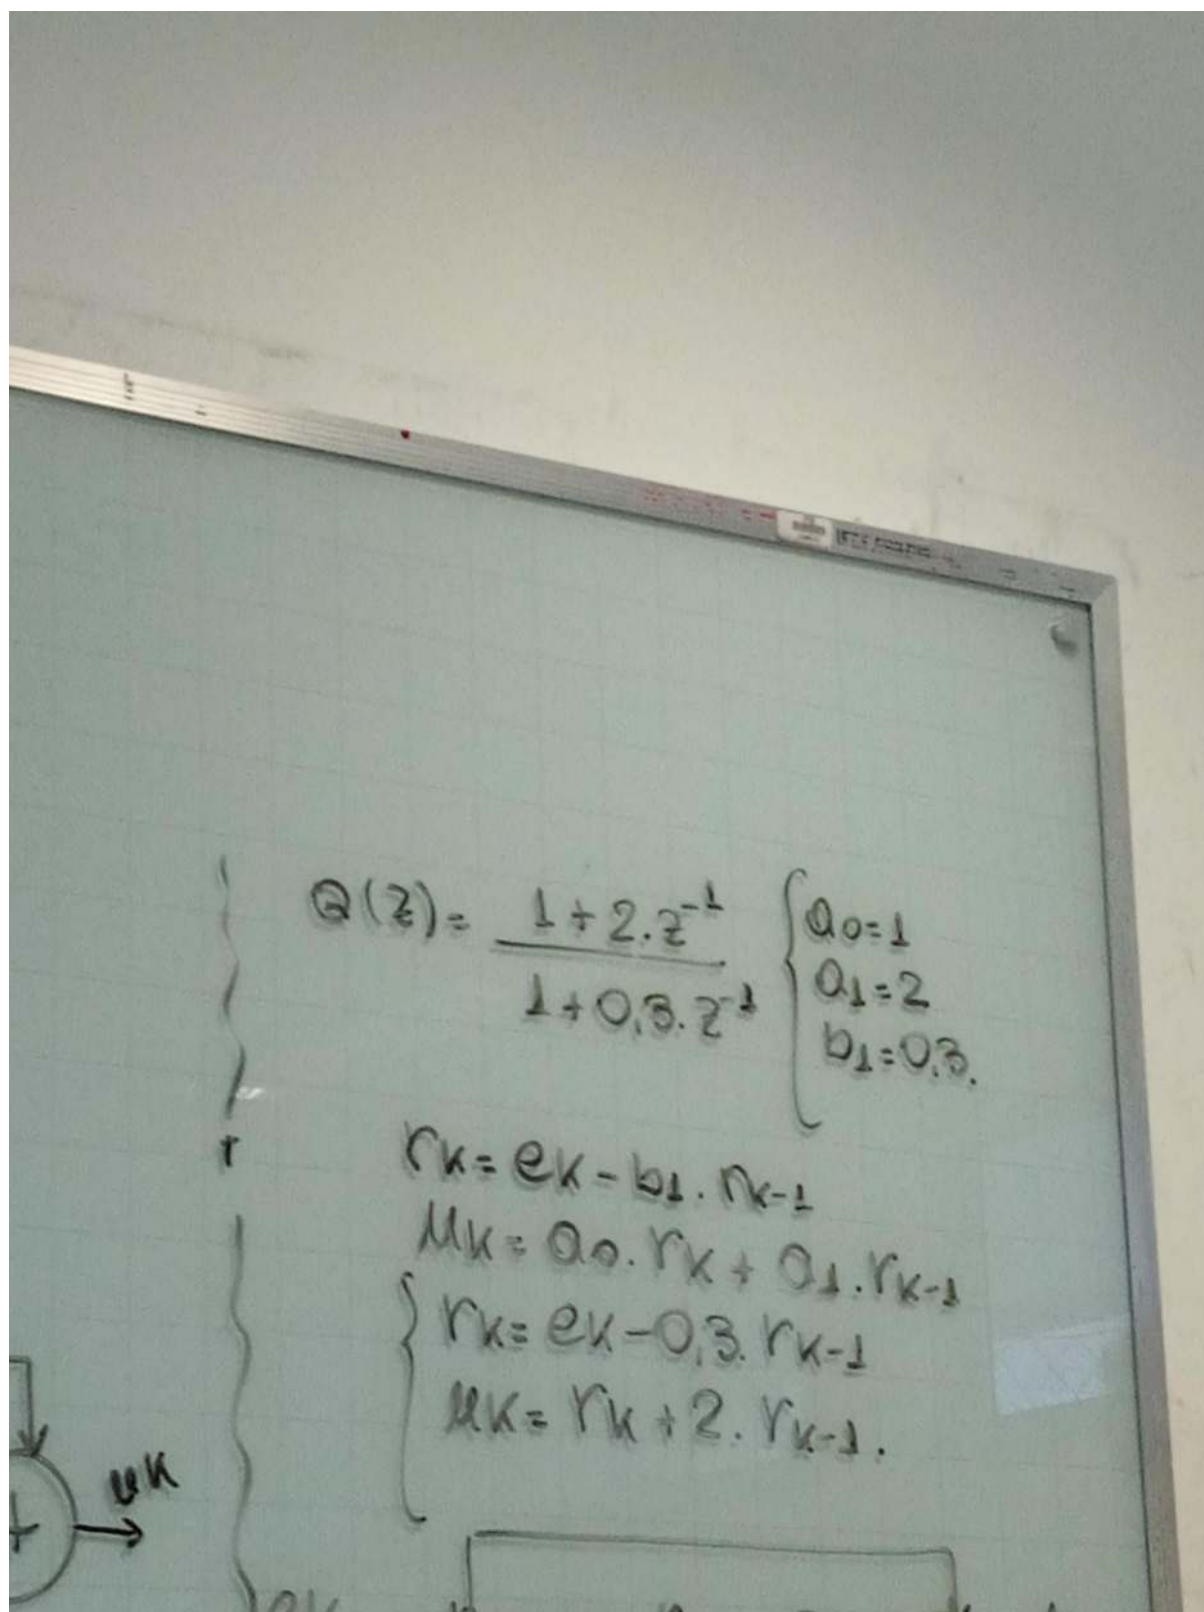 Q(z)= 1+2.z⁻¹ / 1+0,3.z⁻¹
a0=1
a1=2
b1=0,3.
rk=ek-b1.rk-1
uk=a0.rk+a1.rk-1
rk=ek-0,3.rk-1
uk=rk+2.rk-1.
uk
+
ek